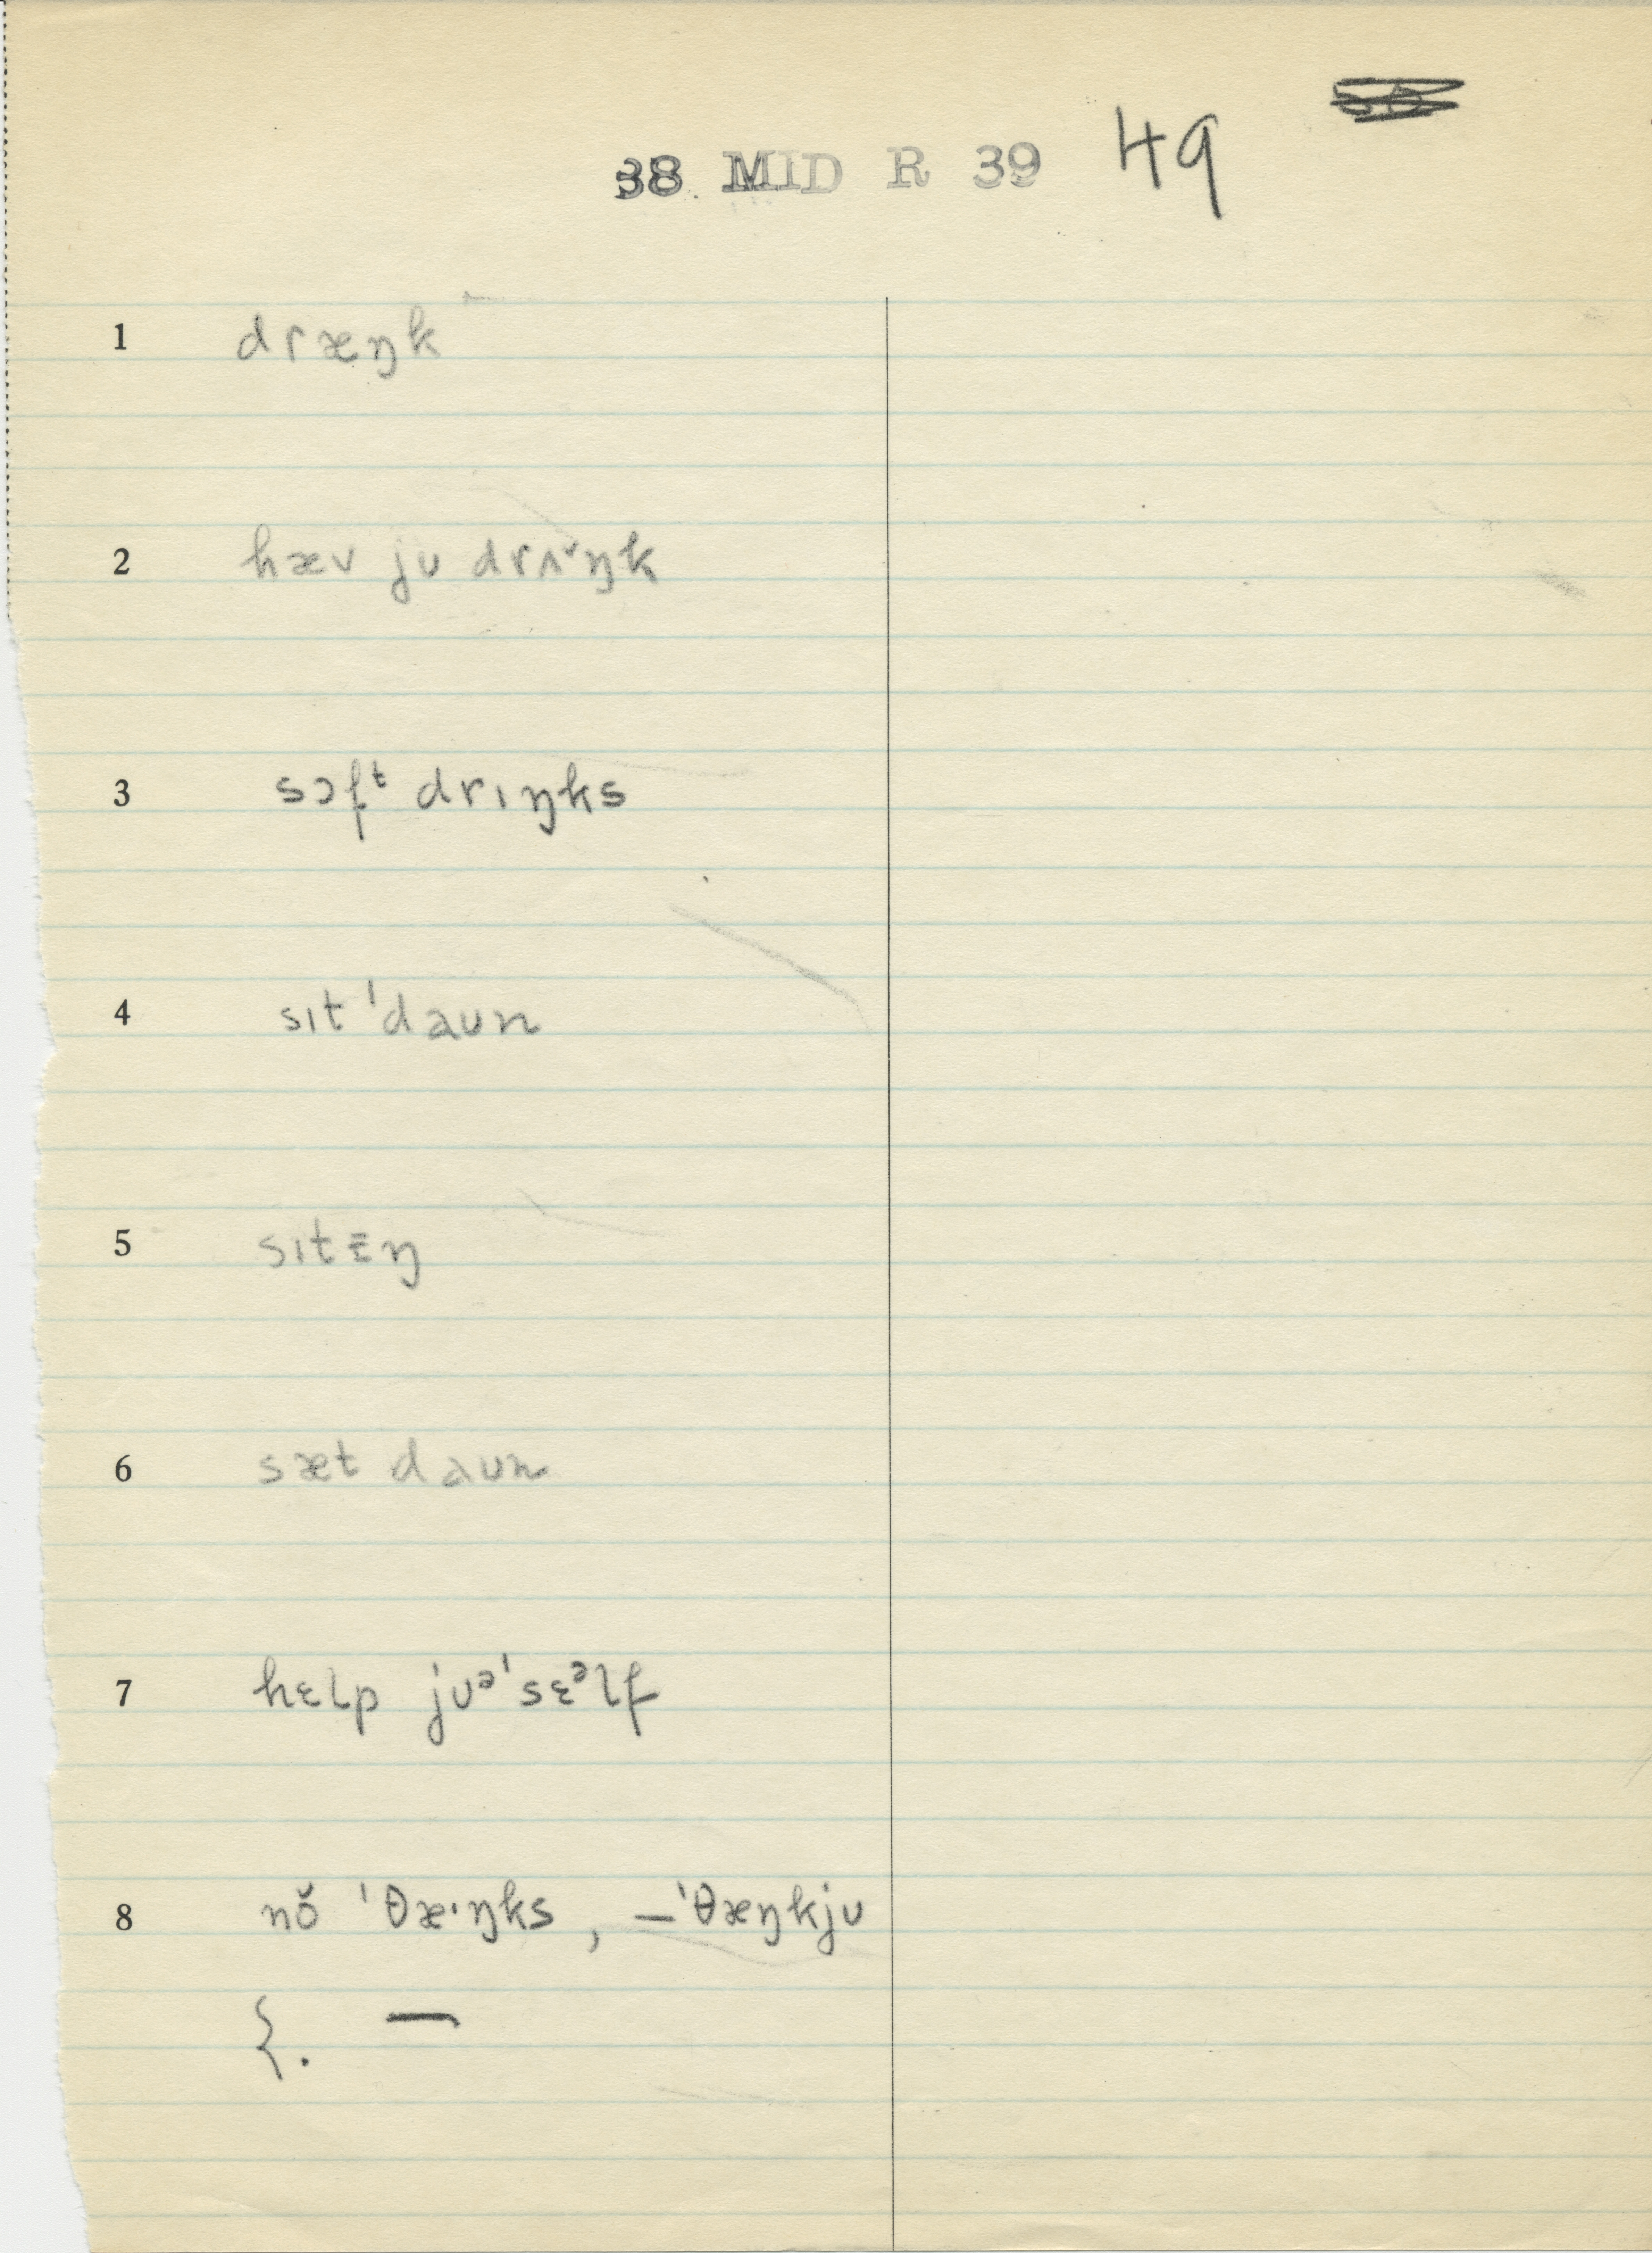 38 MID R 39 49
1 dræŋk
2 hæv jʊ drʌ˅ŋk
3 sɔfᵗ drɪŋks
4 sɪt ˈdaʊn
5 sɪtɪŋ
6 sæt daʊn
7 hɛlp jʊᵊˈsɛᵊlf
8 nŏ ˈθæ·ŋks , —ˈθæŋkjʊ
{. —